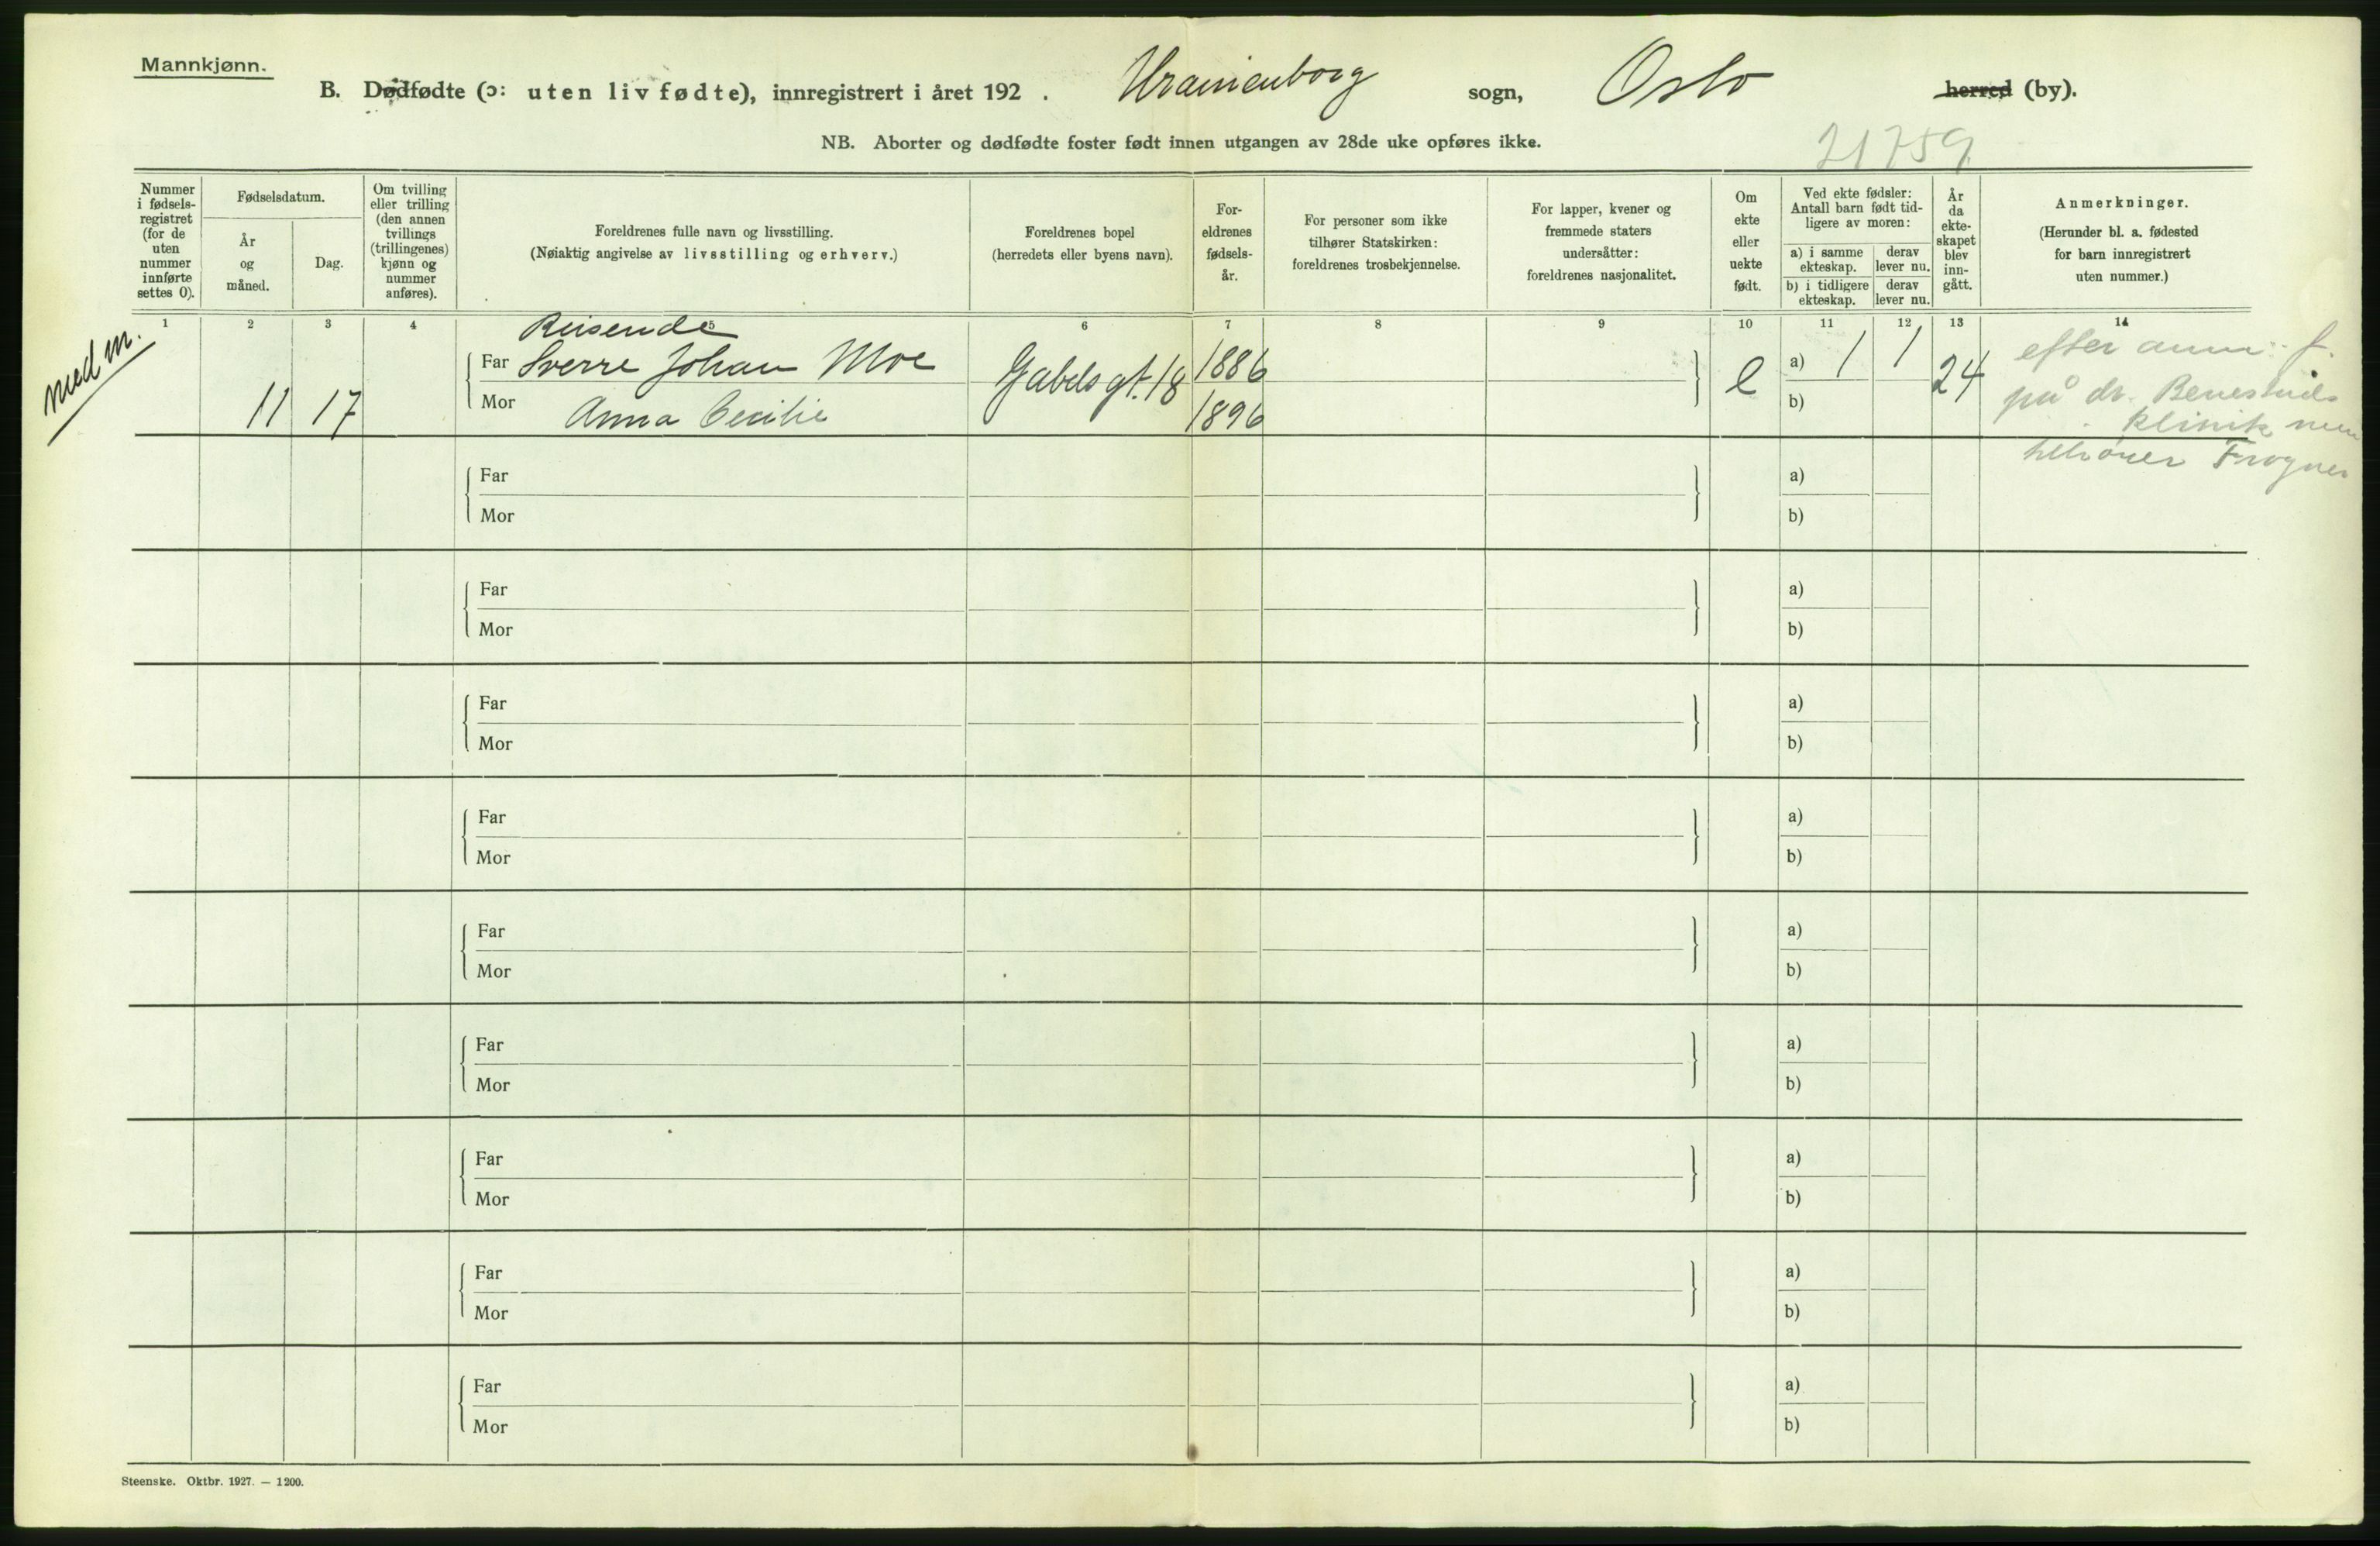 Mannkjønn.
B. Dødfødte (ɔ: uten liv fødte), innregistrert i året 192 . Uranienborg sogn, Oslo herred (by).
NB. Aborter og dødfødte foster født innen utgangen av 28de uke opføres ikke.
21759
Nummer
i fødsels-
registret
(for de
uten
nummer
innførte
settes 0).
Fødselsdatum.
År
og
måned.
Dag.
Om tvilling
eller trilling
(den annen
tvillings
(trillingenes)
kjønn og
nummer
anføres).
Foreldrenes fulle navn og livsstilling.
(Nøiaktig angivelse av livsstilling og erhverv.)
Foreldrenes bopel
(herredets eller byens navn).
For-
eldrenes
fødsels-
år.
For personer som ikke
tilhører Statskirken:
foreldrenes trosbekjennelse.
For lapper, kvener og
fremmede staters
undersåtter:
foreldrenes nasjonalitet.
Om
ekte
eller
uekte
født.
Ved ekte fødsler:
Antall barn født tid-
ligere av moren:
a) i samme
ekteskap.
derav
lever nu.
b) i tidligere
ekteskap.
derav
lever nu.
År
da
ekte-
skapet
blev
inn-
gått.
Anmerkninger.
(Herunder bl. a. fødested
for barn innregistrert
uten nummer.)
1 2 3 4 5 6 7 8 9 10 11 12 13 14
med m.
Reisende
Far Sverre Johan Moe
Mor Anna Cecilie
11 17
Gabels gt. 18
1886
1896
e
a) 1 1
b)
24
efter anm. f.
på dr. Benestads
klinik men
tilhører Frogner
Far a)
Mor b)
Far a)
Mor b)
Far a)
Mor b)
Far a)
Mor b)
Far a)
Mor b)
Far a)
Mor b)
Far a)
Mor b)
Far a)
Mor b)
Far a)
Mor b)
Steenske. Oktbr. 1927. — 1200.